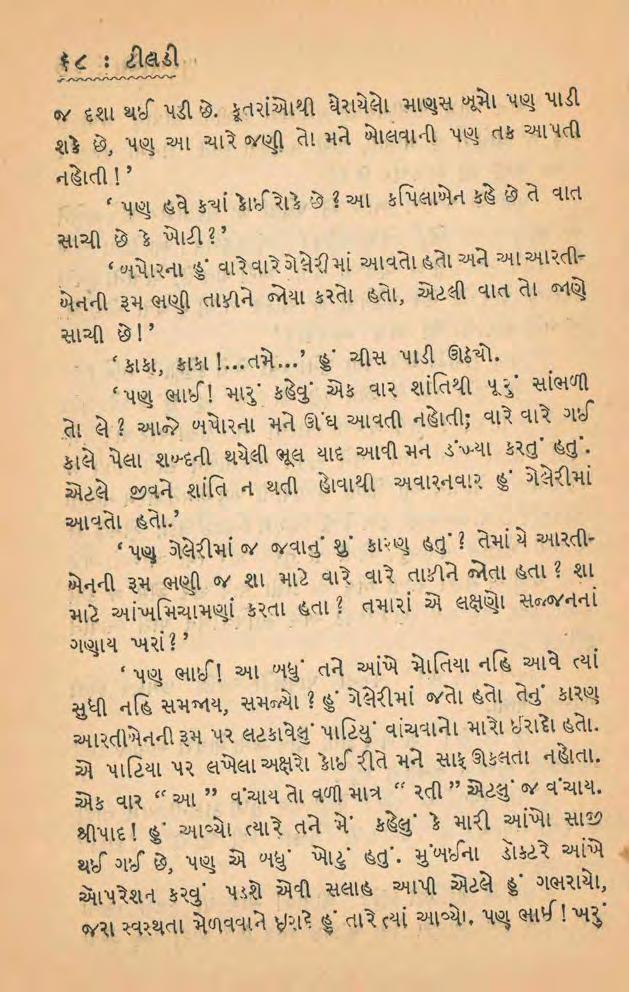 ૬૮ : ટીલડી
જ દશા થઈ પડી છે. કૂતરાંઓથી ઘેરાયેલો માણુસ બૂમો પણ પાડી
શકે છે, પણ આ ચારે જણી તો મને બોલવાની પણ તક આપતી
નહોતી!’
‘પણ હવે કયાં કોઈ રોકે છે? આ કપિલાબેન કહે છે તે વાત
સાચી છે કે ખોટી?’
‘બપોરના હું વારેવારે ગેલેરીમાં આવતો હતો અને આ આરતી-
બેનની રૂમ ભણી તાકીને જોયા કરતો હતો, એટલી વાત તો જાણે
સાચી છે!’
‘કાકા, કાકા!...તમે...’ હું ચીસ પાડી ઊઠયો.
‘પણ ભાઈ! મારું કહેવું એક વાર શાંતિથી પૂરું સાંભળી
તો લે? આજે બપોરના મને ઊંઘ આવતી નહોતી; વારે વારે ગઈ
કાલે પેલા શબ્દની થયેલી ભૂલ યાદ આવી મન ડંખ્યા કરતું હતું.
એટલે જીવને શાંતિ ન થતી હોવાથી અવારનવાર હું ગેલેરીમાં
આવતો હતો.’
‘પણ ગેલેરીમાં જ જવાનું શું કારણ હતું? તેમાં યે આરતી-
બેનની રૂમ ભણી જ શા માટે વારે વારે તાકીને જોતા હતા? શા
માટે આંખમિચામણાં કરતા હતા? તમારાં એ લક્ષણો સજ્જનનાં
ગણાય ખરાં?’
‘પણ ભાઈ! આ બધું તને આંખે મોતિયા નહિ આવે ત્યાં
સુધી નહિ સમજાય, સમજ્યો? હું ગેલેરીમાં જતો હતો તેનું કારણ
આરતીબેનની રૂમ પર લટકાવેલું પાટિયું વાંચવાનો મારો ઈરાદો હતો.
એ પાટિયા પર લખેલા અક્ષરો કોઈ રીતે મને સાફ ઊકલતા નહોતા.
એક વાર “આ” વંચાય તો વળી માત્ર “રતી” એટલું જ વંચાય.
શ્રીપાદ! હું આવ્યો ત્યારે તને મેં કહેલું કે મારી આંખો સાજી
થઈ ગઈ છે, પણ એ બધું ખોટું હતું. મુંબઈના ડૉકટરે આંખે
ઑપરેશન કરવું પડશે એવી સલાહ આપી એટલે હું ગભરાયો,
જરા સ્વસ્થતા મેળવવાને ઈરાદે હું તારે ત્યાં આવ્યો. પણ ભાઈ! ખરું